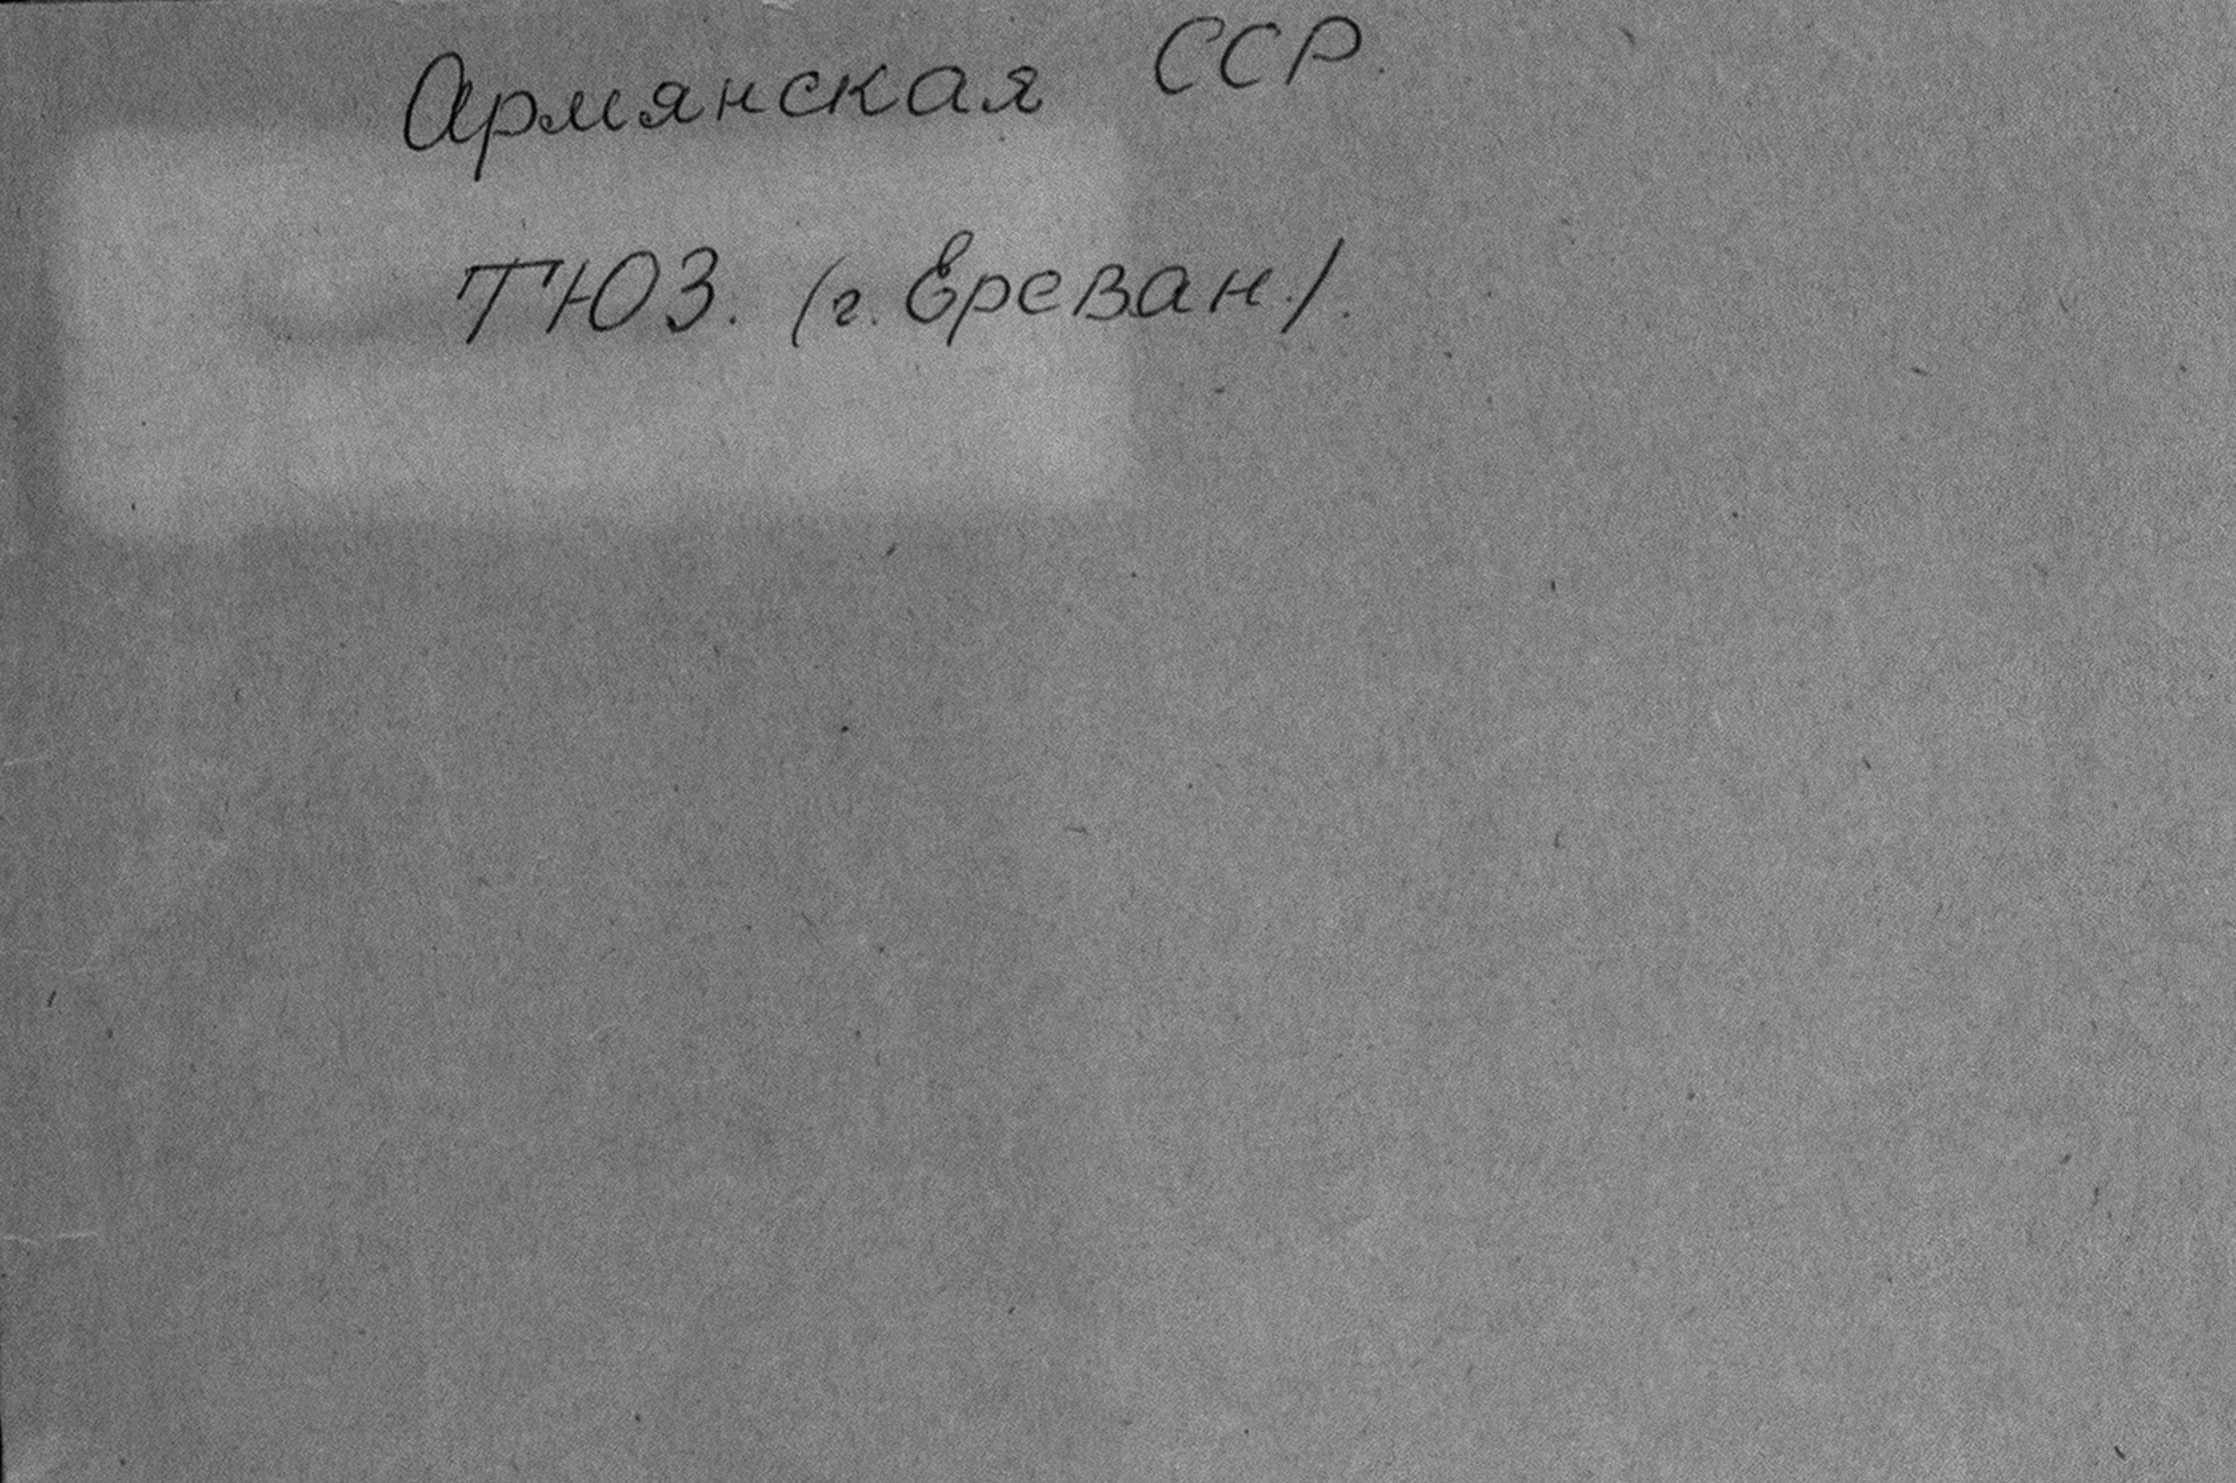 Армянская ССР.
ТЮЗ. (г. Ереван.).